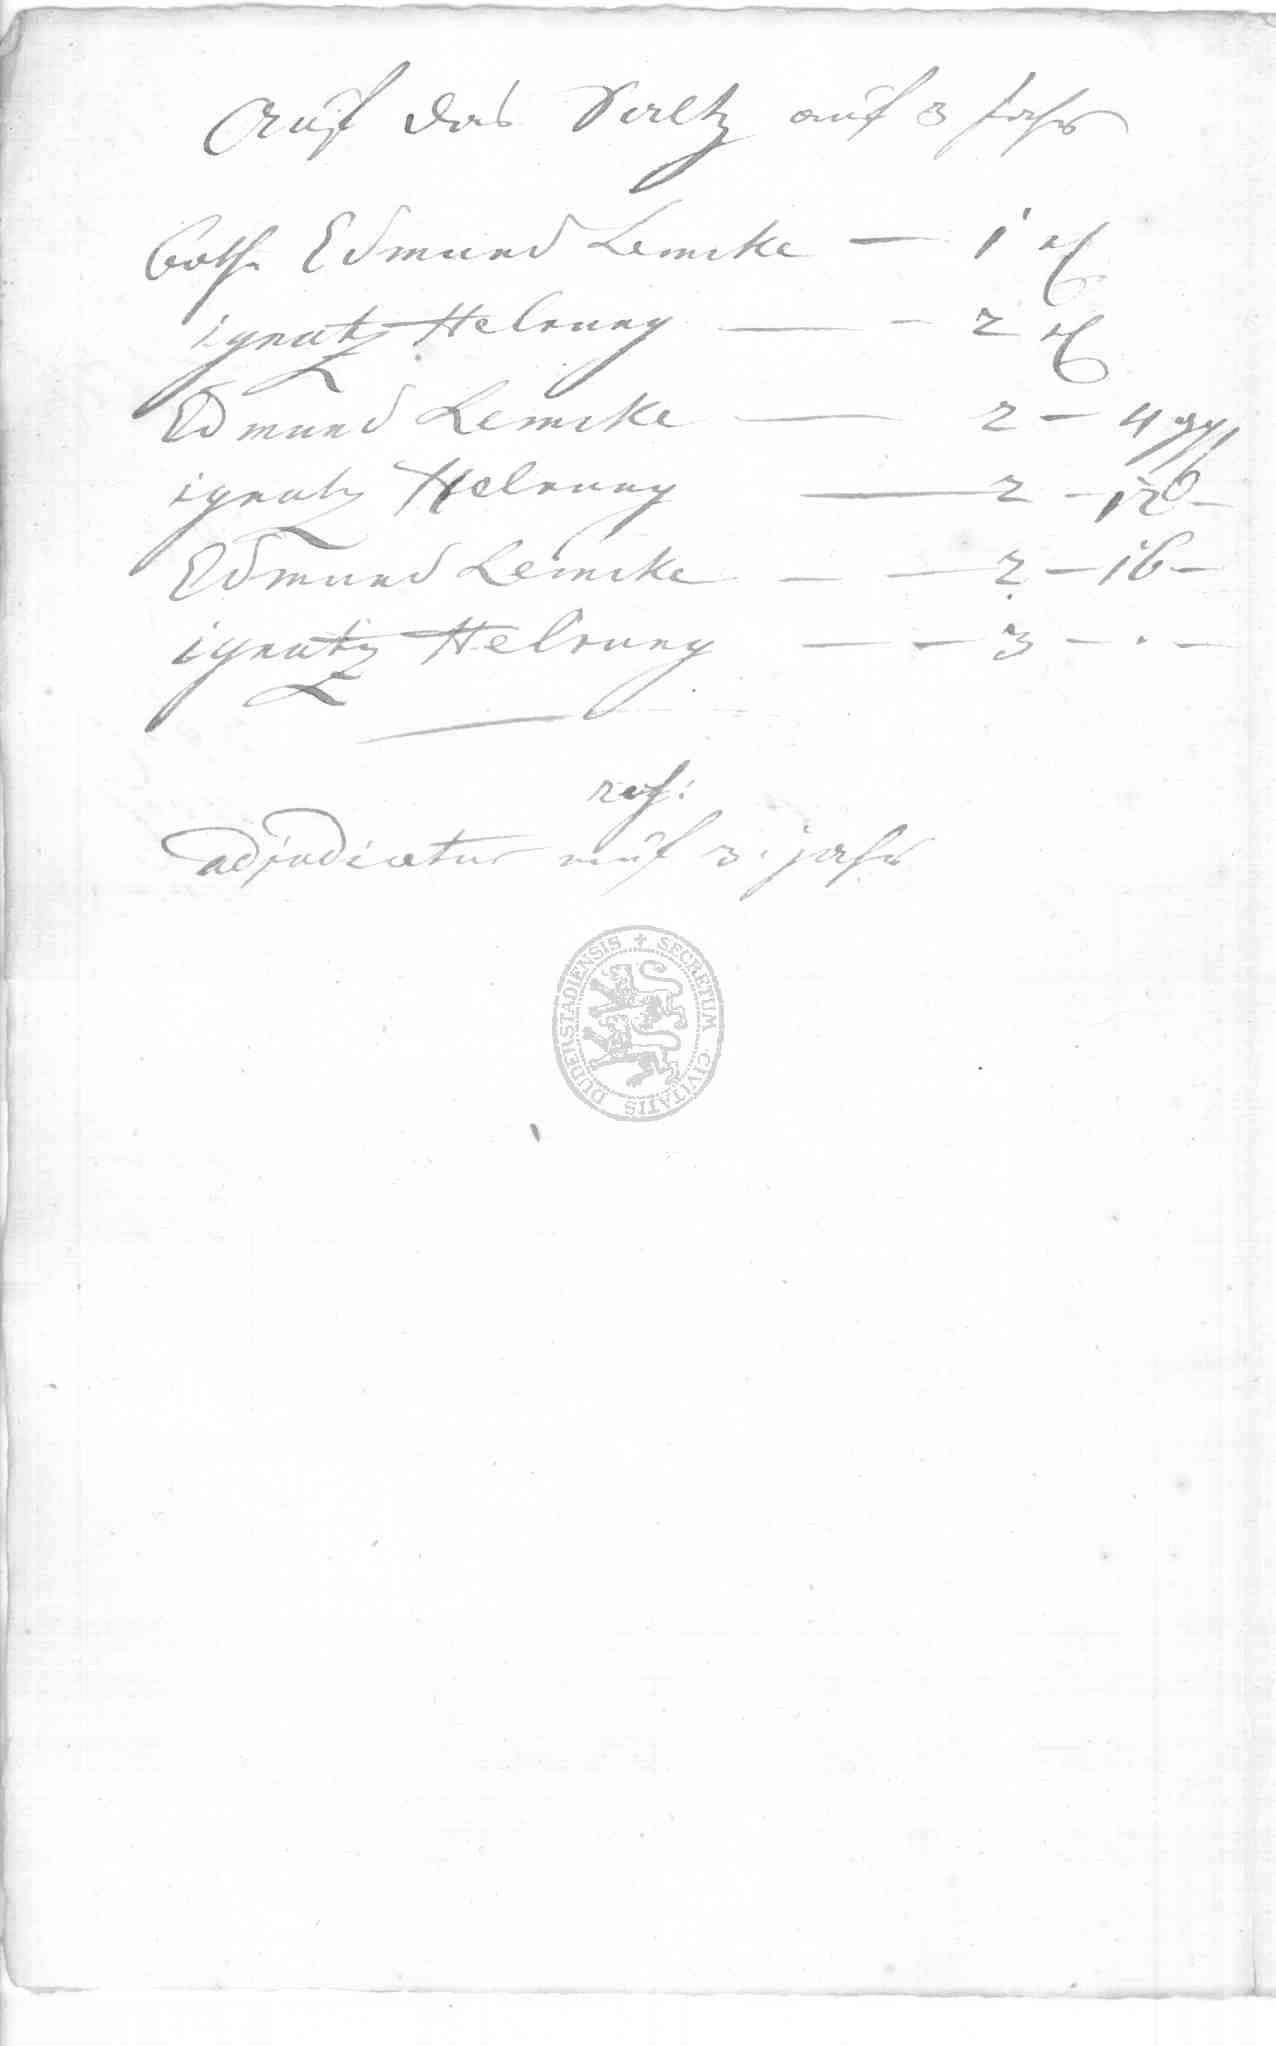 Auf das Saltz auf 3 Jahr
both Edmund Lemcke — 1 rtl
ignatz Helrung — — 2 rtl
Edmund Lemcke — 2 — 4 ggl
ignatz Helrung — 2 — 12 —
Edmund Lemcke — — 2 — 16 —
ignatz Helrung — — 3 — · —
adjudicatur auf 3. jahr
DUDERSTADIENSIS + SECRETUM CIVITATIS